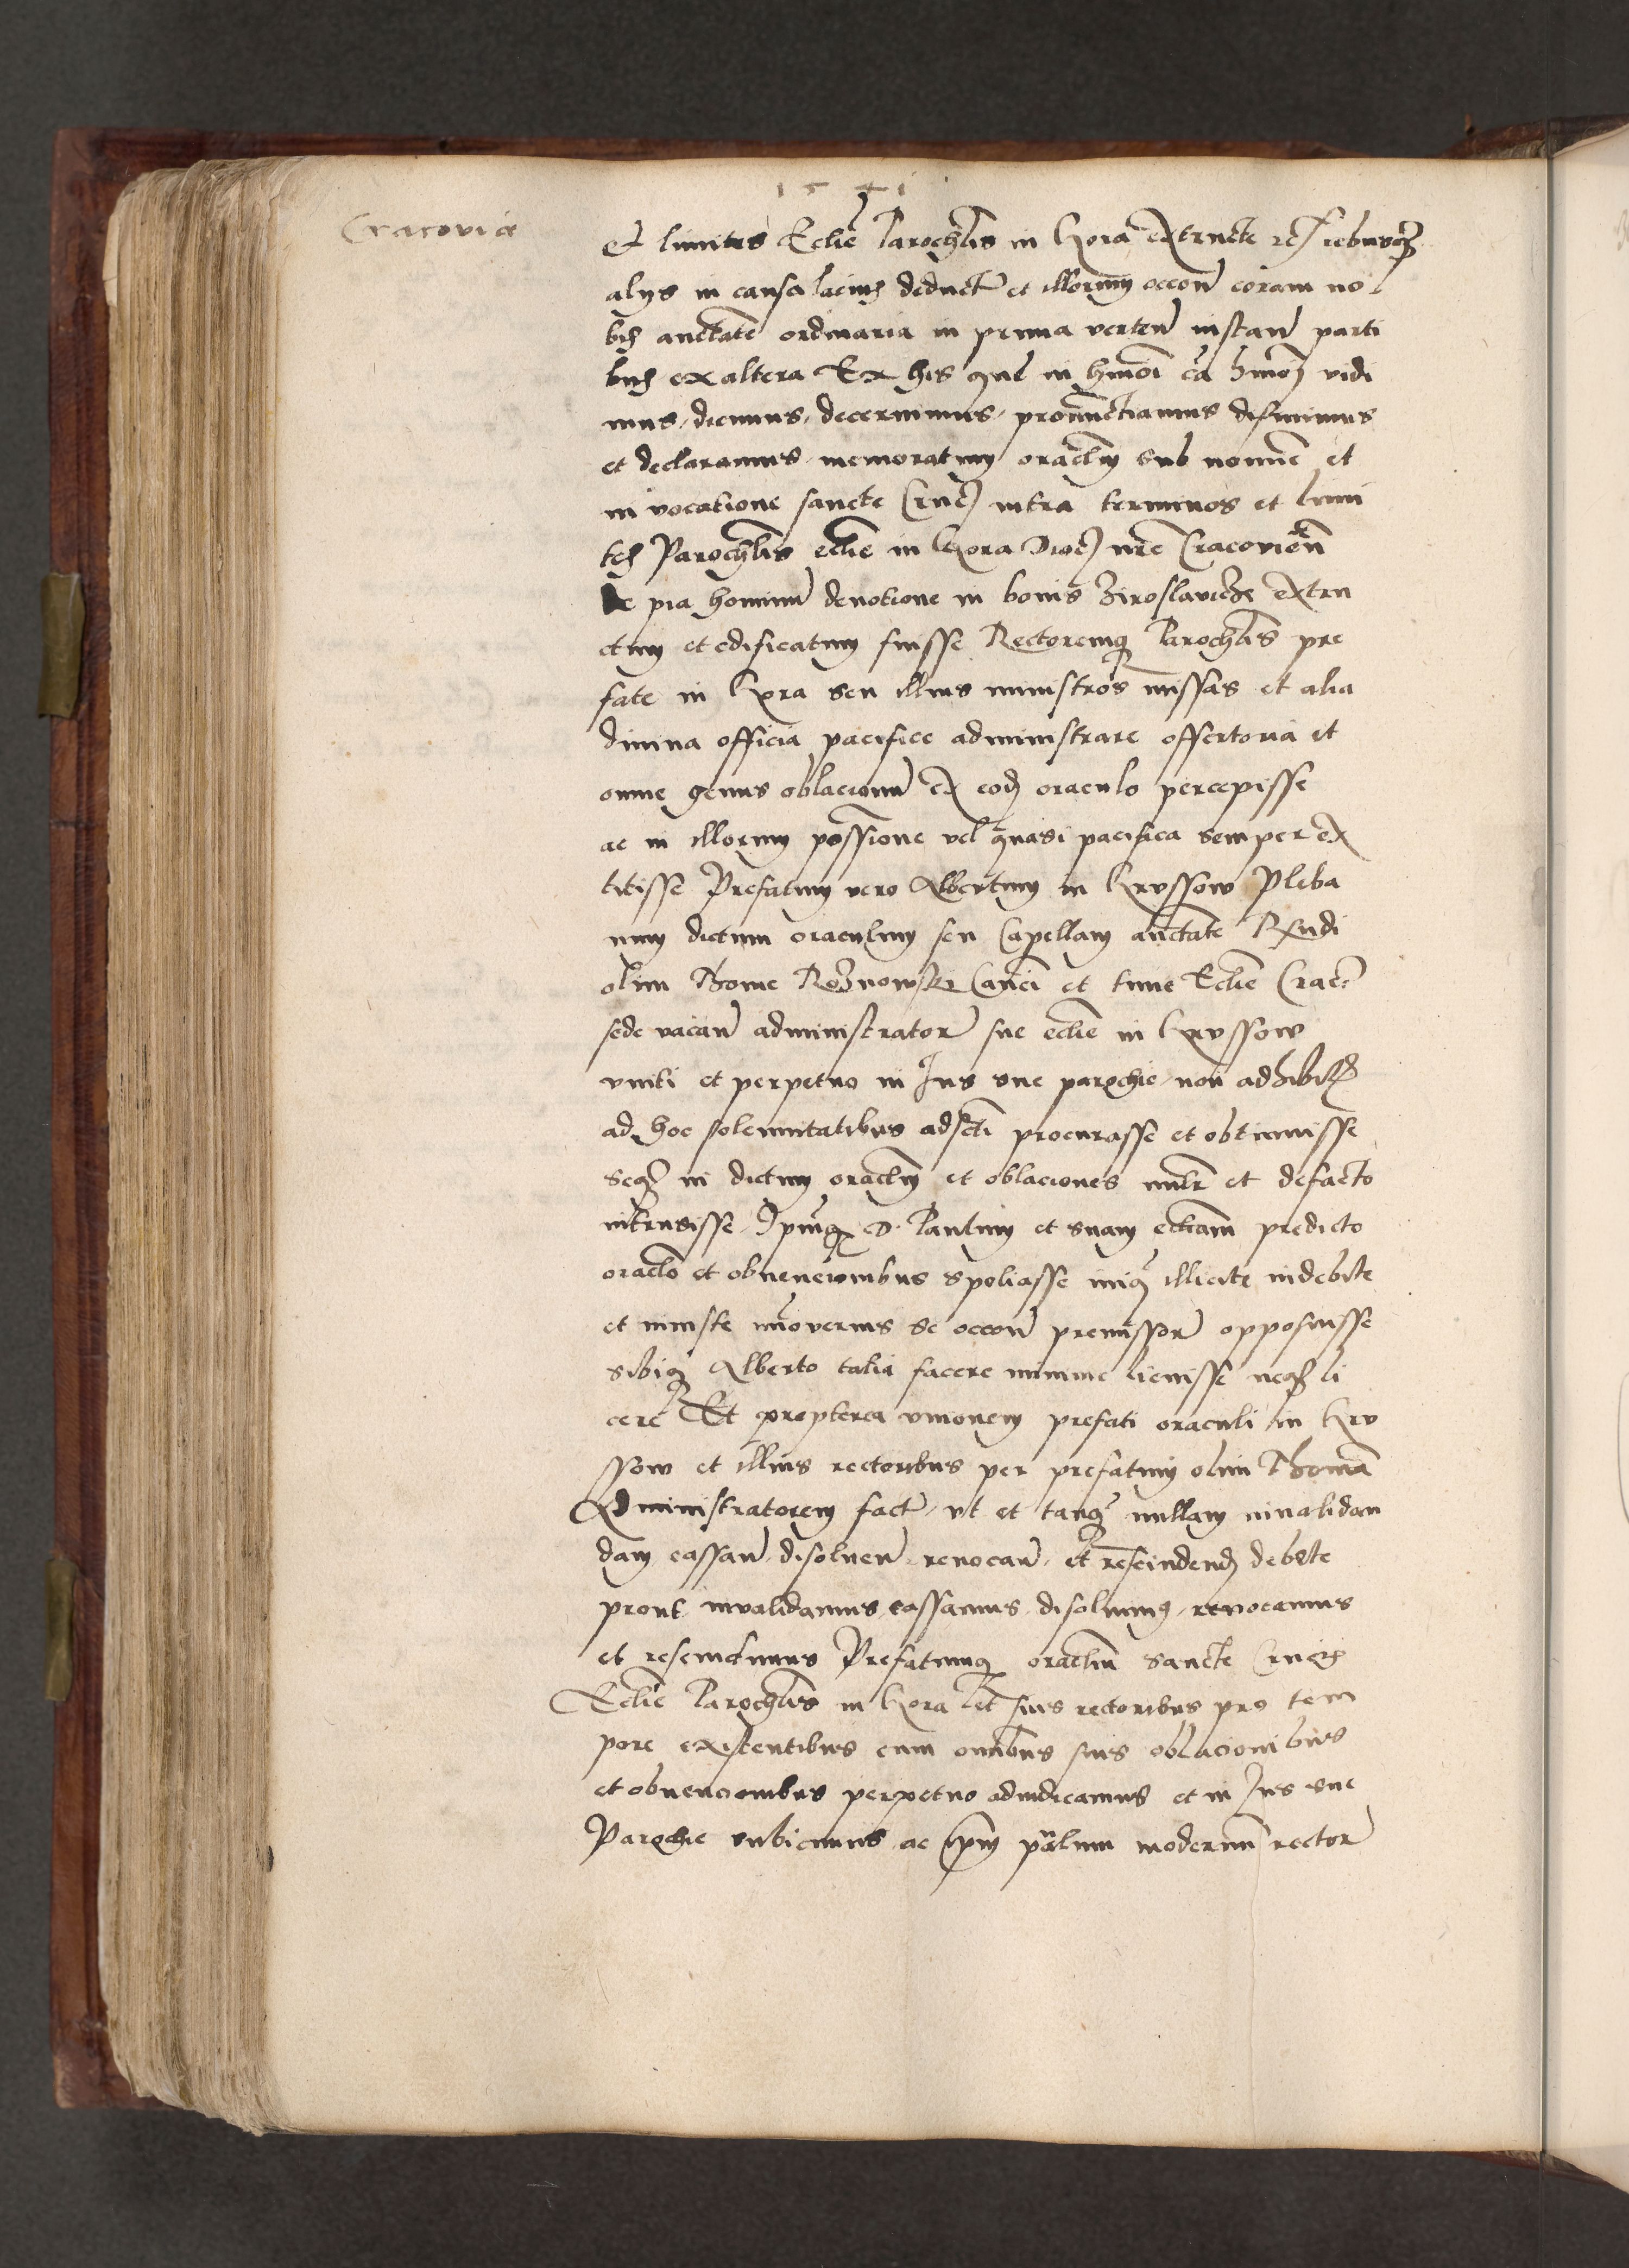 1541
Cracovia
et limites Ecclie parochlis in Gora extructe rebusq
alys in causa lacius deduct et illorum occon coram no
bis auctate ordinaria in prima verten instan parti
bus ex altera Ex his que in hmoi ca vidi
mus, dicimus, decernimus, pronunctiamus difinimus
et declaramus, memoratum oraclm sub nomine et
in vocatione sancte Cruc intra terminos et limi
tes Parochlis eclie in Gora Dioc nre Cracovien
de pia hominu devotione in bonis Ziroslavicze extru
ctum et edificatum fuisse Rectoremq parochlis pre
fate in Gora seu illius ministros missas et alia
divina officia pacifice administrare offertoria et
omne genus oblacionu ex eod oraculo percepisse
ac in illorum possione vel quasi pacifica semper ex
titisse Prefatum vero Albertum in Kryssow pleba
num dictum oraculum seu Capellam auctate Rndi
olim Thome Roznowski Canci et tunc Eclie Crac
sede vacan administrator sue eclie in Kryssow
vniti et perpetuo in Jus sue parochie, non adhibit
ad hoc solennitatibus adscti procurasse et obtinuisse
seq in dictum oraclm et oblaciones nulr et defacto
intrusisse, Ipmq D. Paulum et suam eccliam predicto
oraclo et obvencionibus spoliasse iniq illicite indebite
et iniuste se occon premissor opposuisse
sibiq Alberto talia facere minime licuisse neq li
cere Et propterea vnionem prefati oraculi in Kry
ssow et illius rectoribus per prefatum olim Thoma
Administratorem fact, vt et tanq nullam invalidan
dam cassan, disolven, revocan, et rescindend debite
prout invalidamus, cassamus, disolvimus, revocamus
et rescindimus Prefatumq oraclum sancte Crucis
Eclie parochlis in Gora et suis rectoribus pro tem
pore existentibus cum omnibus suis oblacionibus
et obvencionibus perpetuo adiudicamus et in Jus sue
Parochie subicimus ac ipm paulum modernu rector